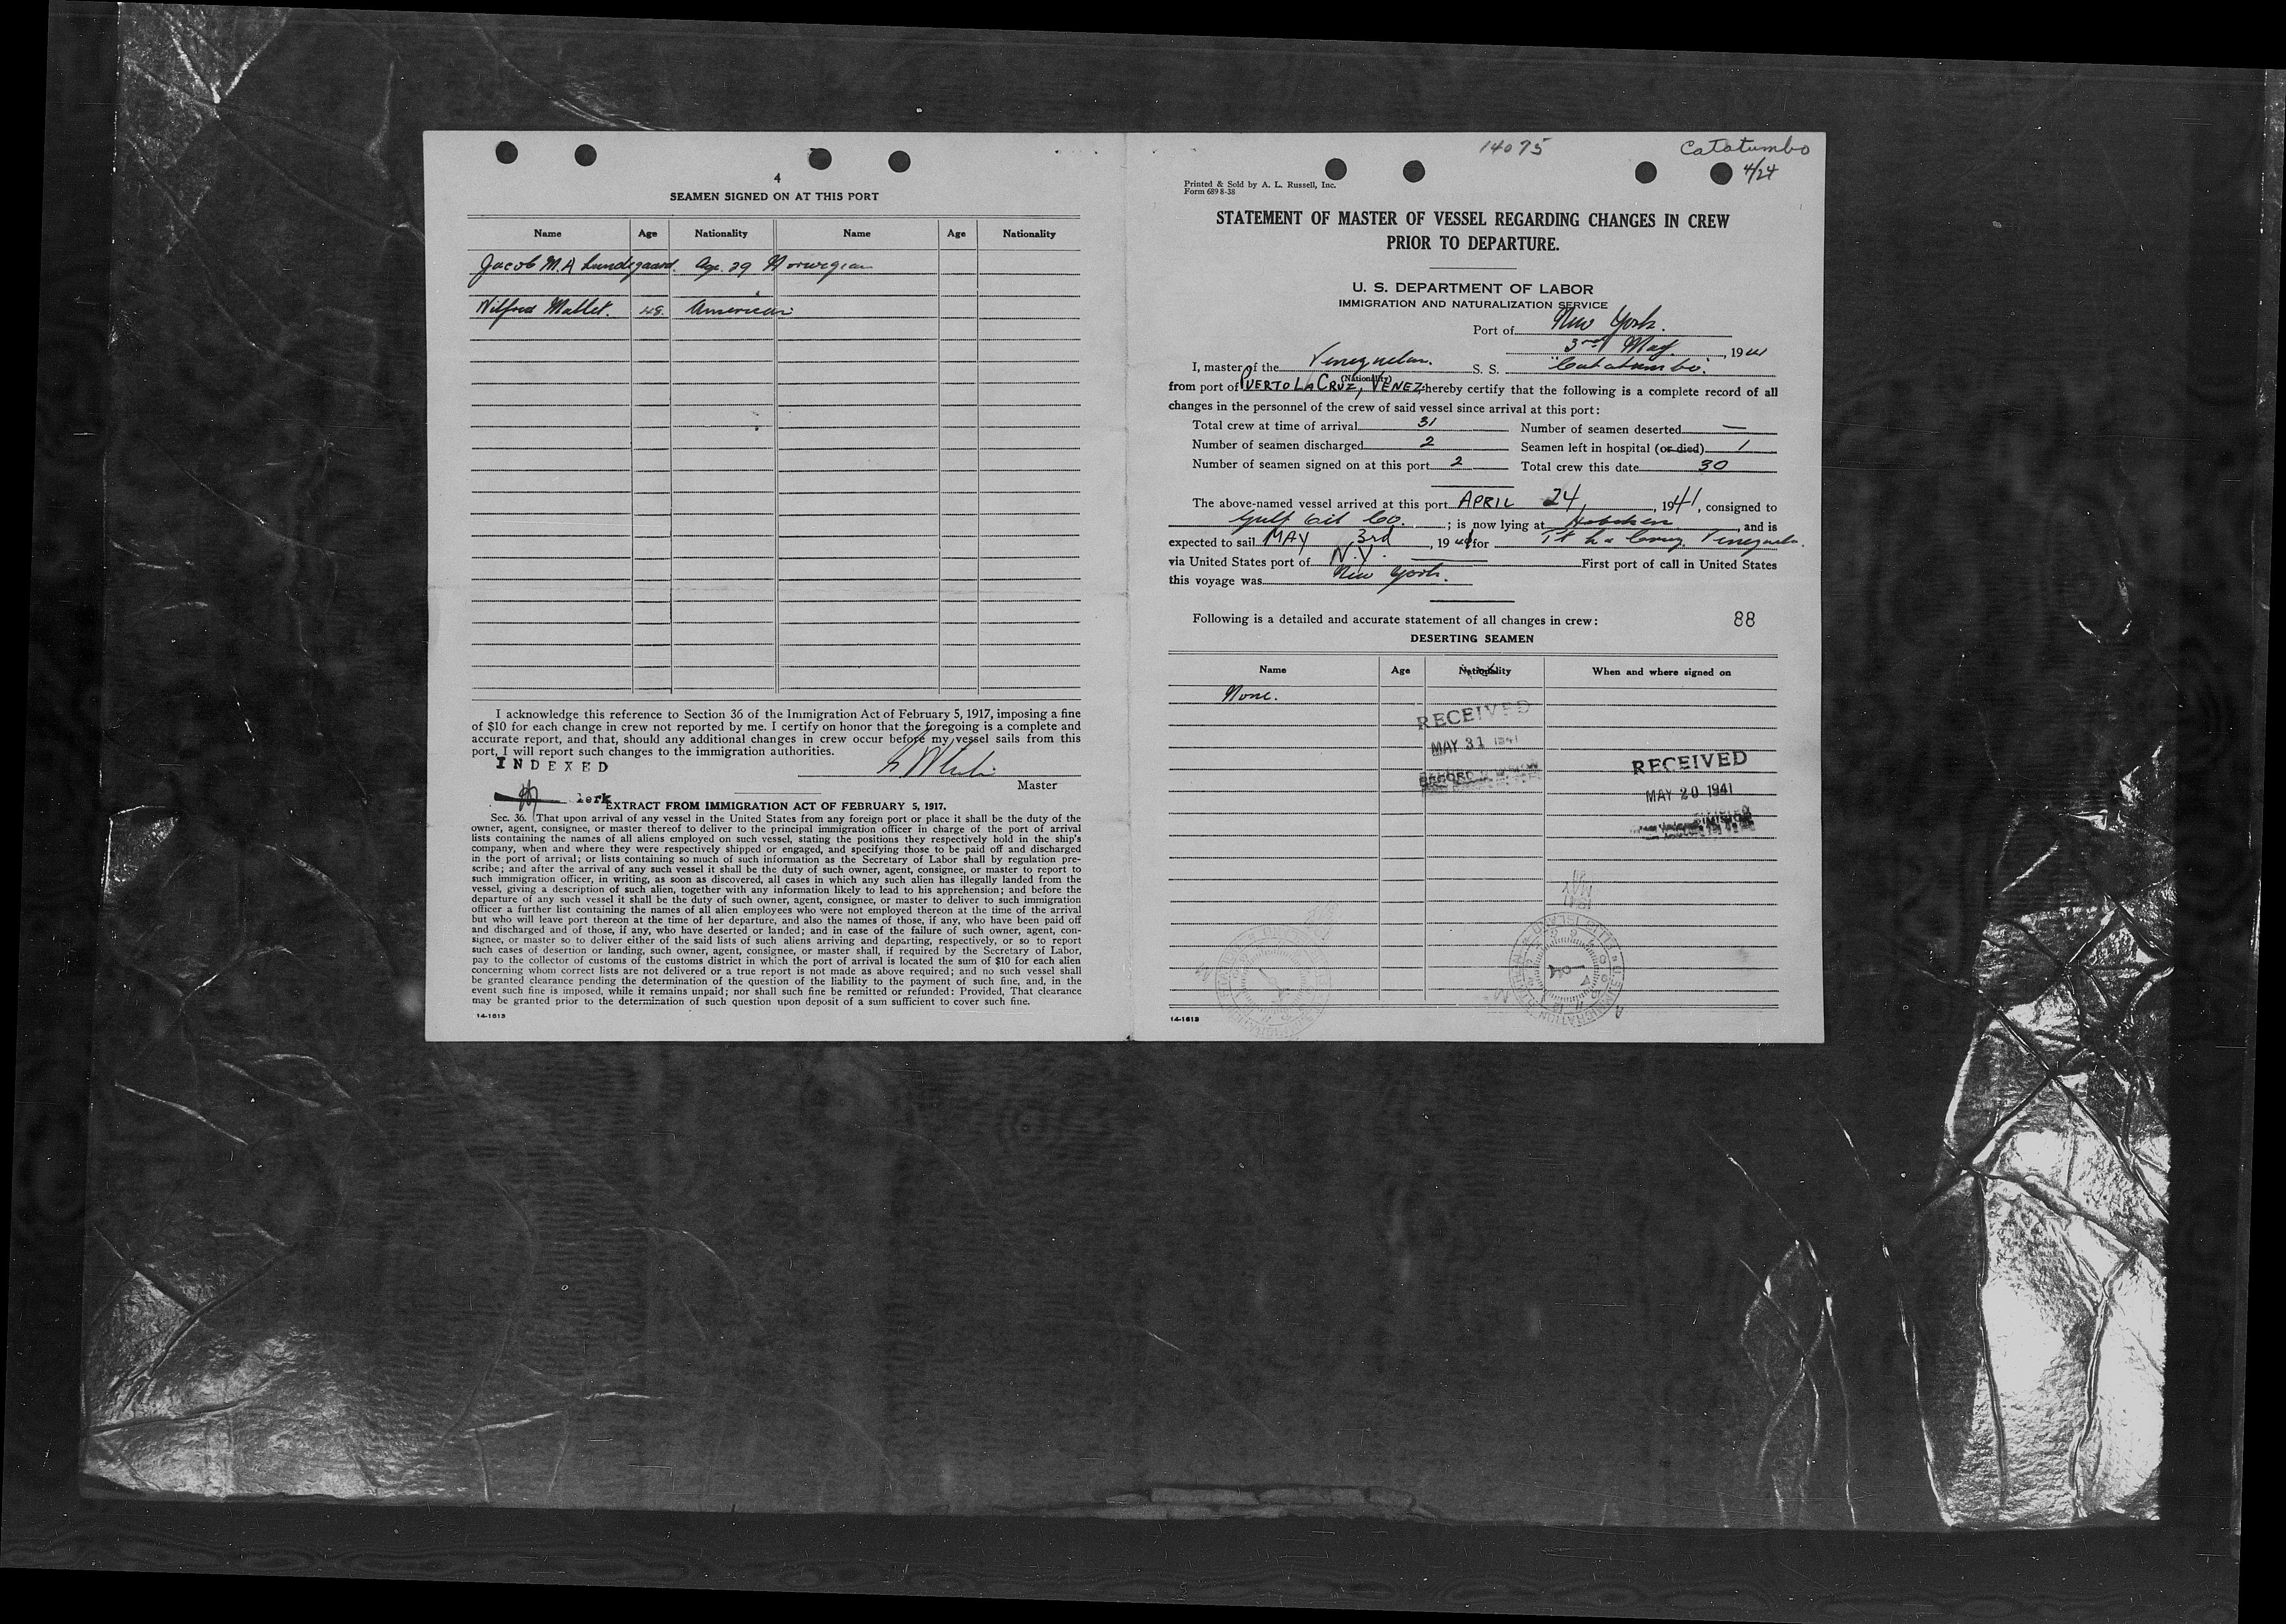 4
SEAMEN SIGNED ON AT THIS PORT
Name Age Nationality Name Age Nationality
Jacob M.A Lundegaard. Age. 29 Norwegian
Wilfred Mallet. 48. American
I acknowledge this reference to Section 36 of the Immigration Act of February 5, 1917, imposing a fine
of $10 for each change in crew not reported by me. I certify on honor that the foregoing is a complete and
accurate report, and that, should any additional changes in crew occur before my vessel sails from this
port, I will report such changes to the immigration authorities.
INDEXED
Master
lerk
EXTRACT FROM IMMIGRATION ACT OF FEBRUARY 5, 1917.
Sec. 36. That upon arrival of any vessel in the United States from any foreign port or place it shall be the duty of the
owner, agent, consignee, or master thereof to deliver to the principal immigration officer in charge of the port of arrival
lists containing the names of all aliens employed on such vessel, stating the positions they respectively hold in the ship's
company, when and where they were respectively shipped or engaged, and specifying those to be paid off and discharged
in the port of arrival; or lists containing so much of such information as the Secretary of Labor shall by regulation pre-
scribe; and after the arrival of any such vessel it shall be the duty of such owner, agent, consignee, or master to report to
such immigration officer, in writing, as soon as discovered, all cases in which any such alien has illegally landed from the
vessel, giving a description of such alien, together with any information likely to lead to his apprehension; and before the
departure of any such vessel it shall be the duty of such owner, agent, consignee, or master to deliver to such immigration
officer a further list containing the names of all alien employees who were not employed thereon at the time of the arrival
but who will leave port thereon at the time of her departure, and also the names of those, if any, who have been paid off
and discharged and of those, if any, who have deserted or landed; and in case of the failure of such owner, agent, con-
signee, or master so to deliver either of the said lists of such aliens arriving and departing, respectively, or so to report
such cases of desertion or landing, such owner, agent, consignee, or master shall, if required by the Secretary of Labor,
pay to the collector of customs of the customs district in which the port of arrival is located the sum of $10 for each alien
concerning whom correct lists are not delivered or a true report is not made as above required; and no such vessel shall
be granted clearance pending the determination of the question of the liability to the payment of such fine, and, in the
event such fine is imposed, while it remains unpaid; nor shall such fine be remitted or refunded: Provided, That clearance
may be granted prior to the determination of such question upon deposit of a sum sufficient to cover such fine.
14-1613
14075
Catatumbo
4/24
Printed & Sold by A. L. Russell, Inc.
Form 689 8-38
STATEMENT OF MASTER OF VESSEL REGARDING CHANGES IN CREW
PRIOR TO DEPARTURE.
U. S. DEPARTMENT OF LABOR
IMMIGRATION AND NATURALIZATION SERVICE
Port of New York.
3rd May, 1941
I, master of the Venezuelan. S. S. "Catatumbo."
(Nationality)
from port of PUERTO LA CRUZ, VENEZ. hereby certify that the following is a complete record of all
changes in the personnel of the crew of said vessel since arrival at this port:
Total crew at time of arrival 31 Number of seamen deserted —
Number of seamen discharged 2 Seamen left in hospital (or died) 1
Number of seamen signed on at this port 2 Total crew this date 30
The above-named vessel arrived at this port APRIL 24, 1941, consigned to
Gulf Oil Co. ; is now lying at Hoboken, and is
expected to sail MAY 3rd, 1941 for Venezuela.
via United States port of N.Y. First port of call in United States
this voyage was New York.
Following is a detailed and accurate statement of all changes in crew: 88
DESERTING SEAMEN
Name Age Nationality When and where signed on
None.
RECEIVED
MAY 31 1941
RECEIVED
MAY 20 1941
14-1613